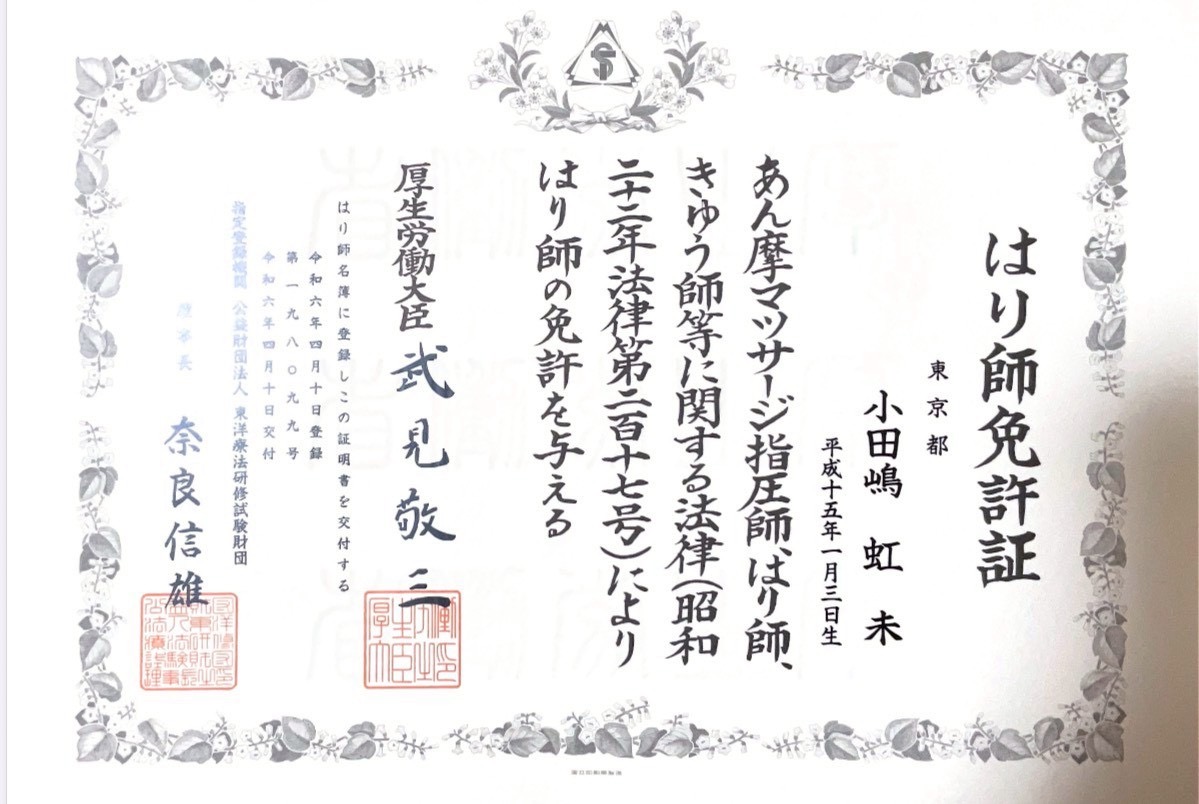 はり師免許証
東京都
小田嶋 虹未
平成十五年一月三日生
あん摩マッサージ指圧師、はり師、
きゆう師等に関する法律(昭和
二十二年法律第二百十七号)により
はり師の免許を与える
厚生労働大臣 武見敬三
はり師名簿に登録しこの証明書を交付する
令和六年四月十日登録
第一九八〇九九号
令和六年四月十日交付
指定登録機関 公益財団法人 東洋療法研修試験財団
理事長 奈良信雄